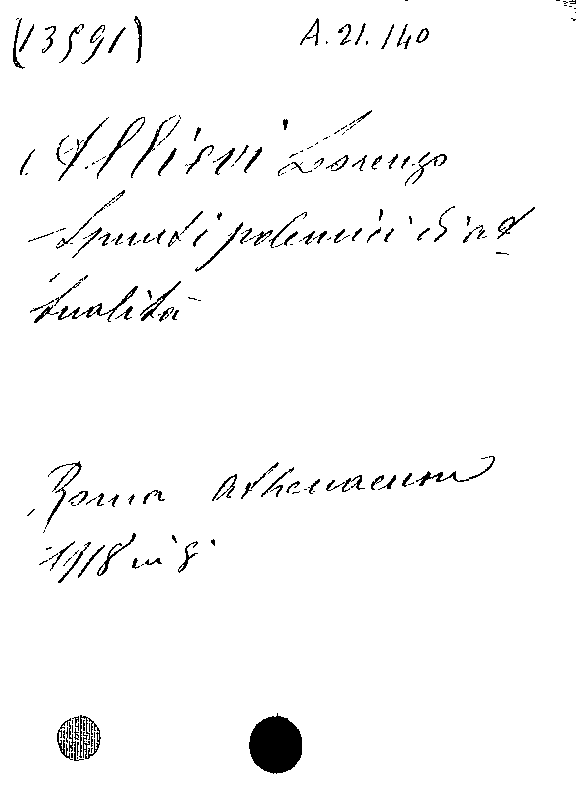 (13591) A.21.140
Allievi Lorenzo
Spunti polemici di at
tualità
Roma Athenaeum
1918 in 8°